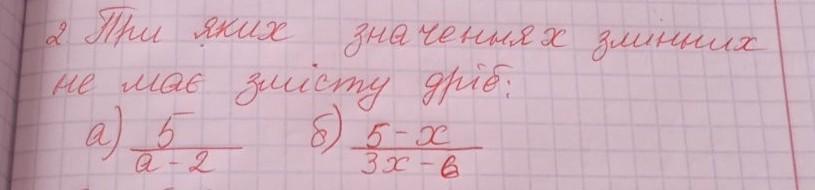 2 При яких значеннях змінних
не має змісту дріб:
а) 5/(a - 2) б) (5 - x)/(3x - 6)